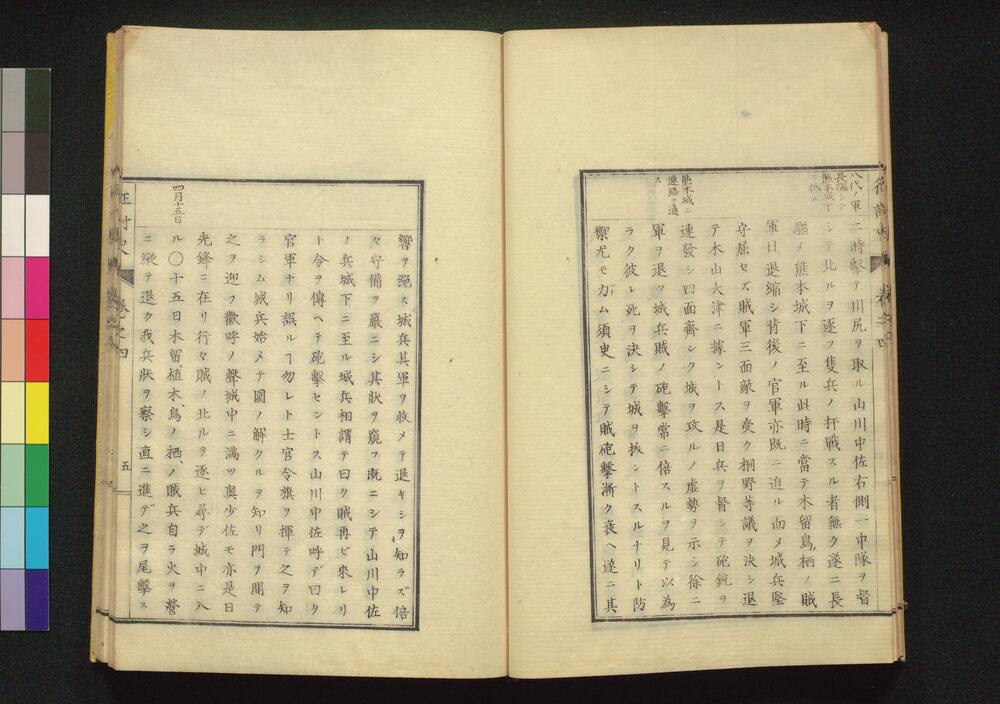 八代ノ軍
長驅シテ
熊本城下
ニ抵ル
二時擊テ川尻ヲ取ル山川中佐右側一中隊ヲ督
シテ北ルヲ逐フ隻兵ノ扞戰スル者無ク遂ニ長
驅メ熊本城下ニ至ル此時ニ當テ木留鳥ノ栖ノ賊
軍日退縮シ背後ノ官軍亦既ニ迫ル而メ城兵堅
守屈セズ賊軍三面敵ヲ受ク桐野等議ヲ決シ退
テ木山大津ニ據ントス是日兵ヲ督シテ砲銃ヲ
熊本城ニ
連絡ヲ通
ス
連發シ四面齊シク城ヲ攻ルノ虛勢ヲ示シ徐ニ
軍ヲ退ク城兵賊ノ砲擊常ニ倍スルヲ見テ以為
ラク彼レ死ヲ決シテ城ヲ拔ントスルナリト防
禦尤モ力ム須臾ニシテ賊砲擊漸ク衰ヘ遂ニ其
響ヲ絕ス城兵其軍ヲ收メテ退キシヲ知ラズ倍
々守備ヲ嚴ニシ其狀ヲ窺フ既ニシテ山川中佐
ノ兵城下ニ至ル城兵相謂テ曰ク賊再ビ來レリ
ト令ヲ傳ヘテ砲擊セントス山川中佐呼デ曰ク
官軍ナリ誤ルヿ勿レト士官令旗ヲ揮テ之ヲ知
ラシム城兵始メテ圍ノ解クルヲ知リ門ヲ開テ
之ヲ迎フ歡呼ノ聲城中ニ滿ツ奧少佐モ亦是日
先鋒ニ在リ行々賊ノ北ルヲ逐ヒ尋デ城中ニ入
四月十五日
ル〇十五日木留、植木、鳥ノ栖、ノ賊兵自ラ火ヲ營
ニ縱テ退ク我兵狀ヲ察シ直ニ進デ之ヲ尾擊ス
卷之四
五